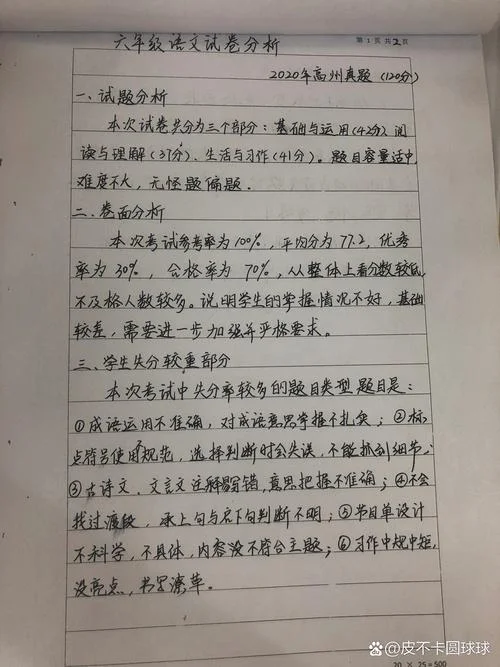 第 1 页 共 2 页
六年级语文试卷分析
2020年高州真题 (120分)
一、试题分析
本次试卷共分为三个部分：基础与运用(42分) 阅
读与理解(37分)、生活与习作(41分)。题目容量适中
难度不大，无怪题偏题.
二、卷面分析
本次考试参考率为100%，平均分为77.2, 优秀
率为30%，合格率为70%，从整体上看分数较低，
不及格人数较多。说明学生的掌握情况不好，基础
较差，需要进一步加强并严格要求。
三、学生失分较重部分
本次考试中失分率较多的题目类型题目是：
①成语运用不准确，对成语意思掌握不扎实；②标
点符号使用规范，选择判断时会失误，不能抓到细节；
③古诗文、文言文注释易错，意思把握不准确；④不会
找过渡段，承上句与启下句判断不明；⑤节目单设计
不科学，不具体，内容没不符合主题；⑥习作中规中矩，
没亮点，书写潦草。
20 × 25 = 500
@皮不卡圆球球